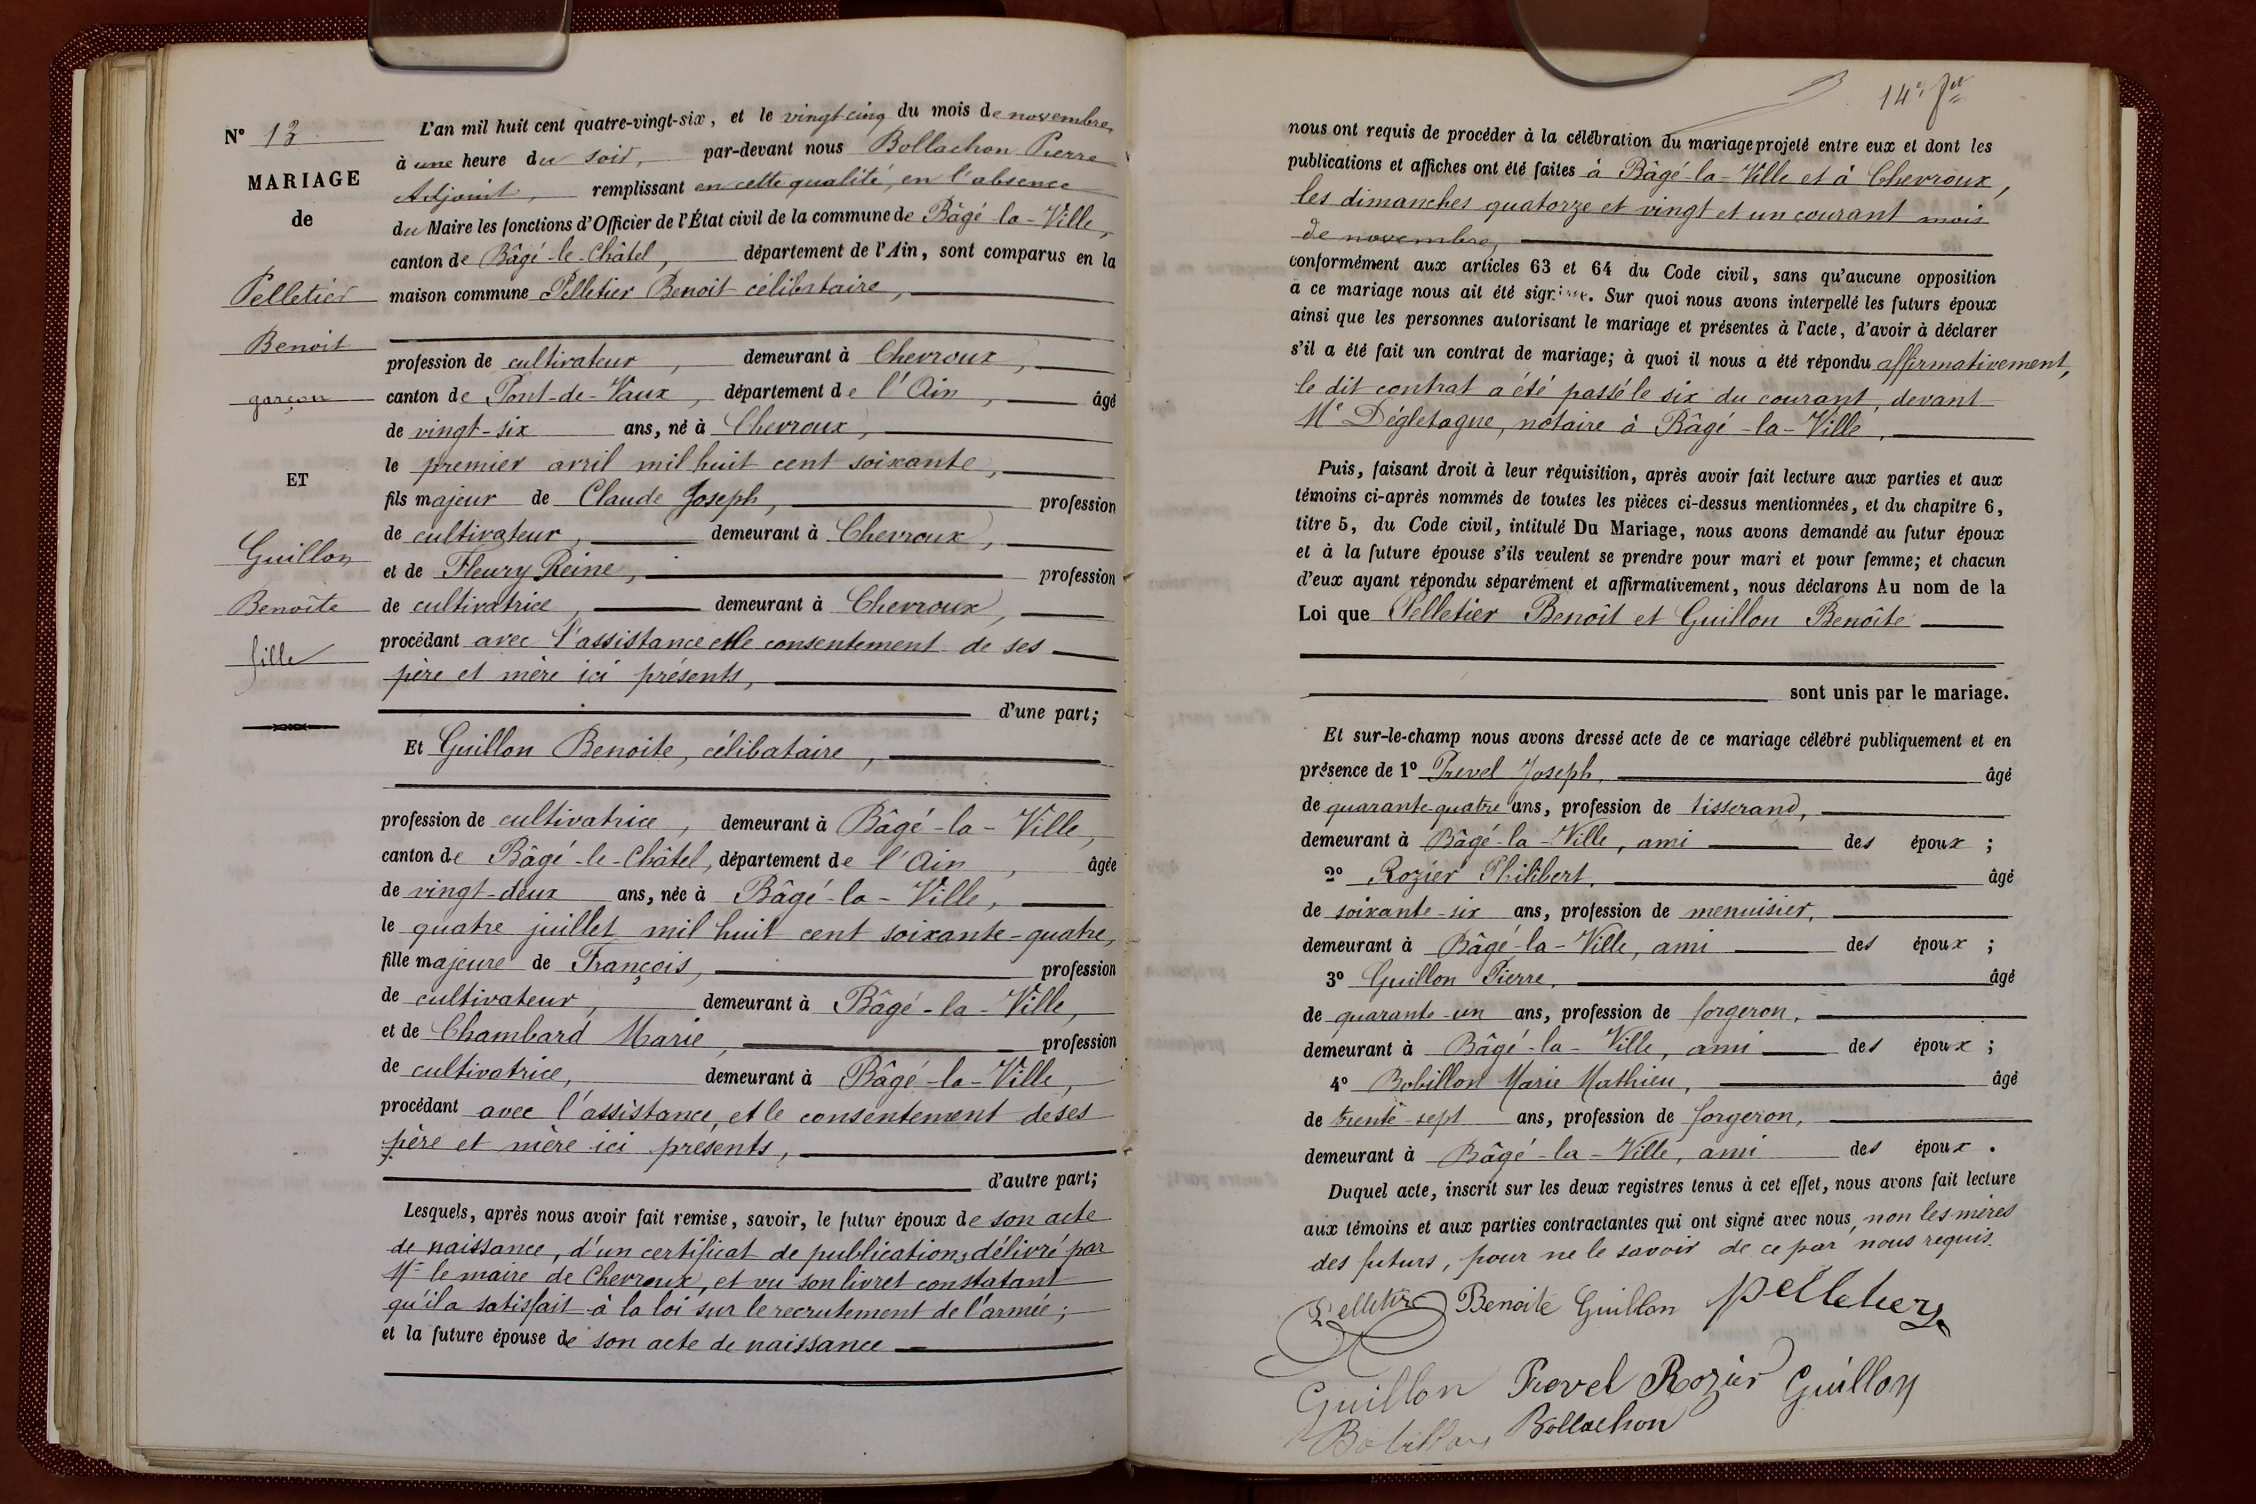 N° 13
MARIAGE
de
Pelletier
Benoit
garçon
ET
Guillon
Benoîte
fille
L'an mil huit cent quatre-vingt-six, et le vingt-cinq du mois de novembre,
à une heure du soir, par-devant nous Bollachon Pierre
Adjoint, remplissant en cette qualité, en l'absence
du Maire les fonctions d'Officier de l'État civil de la commune de Bâgé-la-Ville,
canton de Bâgé-le-Châtel, département de l'Ain, sont comparus en la
maison commune Pelletier Benoit célibataire,
profession de cultivateur, demeurant à Chevroux,
canton de Pont-de-Vaux, département de l'Ain, âgé
de vingt-six ans, né à Chevroux,
le premier avril mil huit cent soixante,
fils majeur de Claude Joseph, profession
de cultivateur, demeurant à Chevroux,
et de Fleury Reine, profession
de cultivatrice, demeurant à Chevroux,
procédant avec l'assistance et le consentement de ses
père et mère ici présents,
d'une part;
Et Guillon Benoite, célibataire,
profession de cultivatrice, demeurant à Bâgé-la-Ville,
canton de Bâgé-le-Châtel, département de l'Ain, âgée
de vingt-deux ans, née à Bâgé-la-Ville,
le quatre juillet mil huit cent soixante-quatre,
fille majeure de François, profession
de cultivateur, demeurant à Bâgé-la-Ville,
et de Chambard Marie, profession
de cultivatrice, demeurant à Bâgé-la-Ville,
procédant avec l'assistance, et le consentement de ses
père et mère ici présents,
d'autre part;
Lesquels, après nous avoir fait remise, savoir, le futur époux de son acte
de naissance, d'un certificat de publications délivré par
Mr le maire de Chevroux, et vu son livret constatant
qu'il a satisfait à la loi sur le recrutement de l'armée;
et la future épouse de son acte de naissance
14e
nous ont requis de procéder à la célébration du mariage projeté entre eux et dont les
publications et affiches ont été faites à Bâgé-la-Ville et à Chevroux,
les dimanches quatorze et vingt et un courant mois
de novembre,
conformément aux articles 63 et 64 du Code civil, sans qu'aucune opposition
à ce mariage nous ait été signifiée. Sur quoi nous avons interpellé les futurs époux
ainsi que les personnes autorisant le mariage et présentes à l'acte, d'avoir à déclarer
s'il a été fait un contrat de mariage; à quoi il nous a été répondu affirmativement,
le dit contrat a été passé le six du courant, devant
Me Dégletagne, notaire à Bâgé-la-Ville,
Puis, faisant droit à leur réquisition, après avoir fait lecture aux parties et aux
témoins ci-après nommés de toutes les pièces ci-dessus mentionnées, et du chapitre 6,
titre 5, du Code civil, intitulé Du Mariage, nous avons demandé au futur époux
et à la future épouse s'ils veulent se prendre pour mari et pour femme; et chacun
d'eux ayant répondu séparément et affirmativement, nous déclarons Au nom de la
Loi que Pelletier Benoît et Guillon Benoîte
sont unis par le mariage.
Et sur-le-champ nous avons dressé acte de ce mariage célébré publiquement et en
présence de 1° Prevel Joseph, âgé
de quarante-quatre ans, profession de tisserand,
demeurant à Bâgé-la-Ville, ami des époux ;
2° Rozier Philibert, âgé
de soixante-six ans, profession de menuisier,
demeurant à Bâgé-la-Ville, ami des époux ;
3° Guillon Pierre, âgé
de quarante-un ans, profession de forgeron,
demeurant à Bâgé-la-Ville, ami des époux ;
4° Bobillon Marie Mathieu, âgé
de trente-sept ans, profession de forgeron,
demeurant à Bâgé-la-Ville, ami des époux .
Duquel acte, inscrit sur les deux registres tenus à cet effet, nous avons fait lecture
aux témoins et aux parties contractantes qui ont signé avec nous, non les mères
des futurs, pour ne le savoir de ce par nous requis.
Pelletier Benoite Guillon Pelletier
Guillon Prevel Rozier Guillon
Bobillon Bollachon